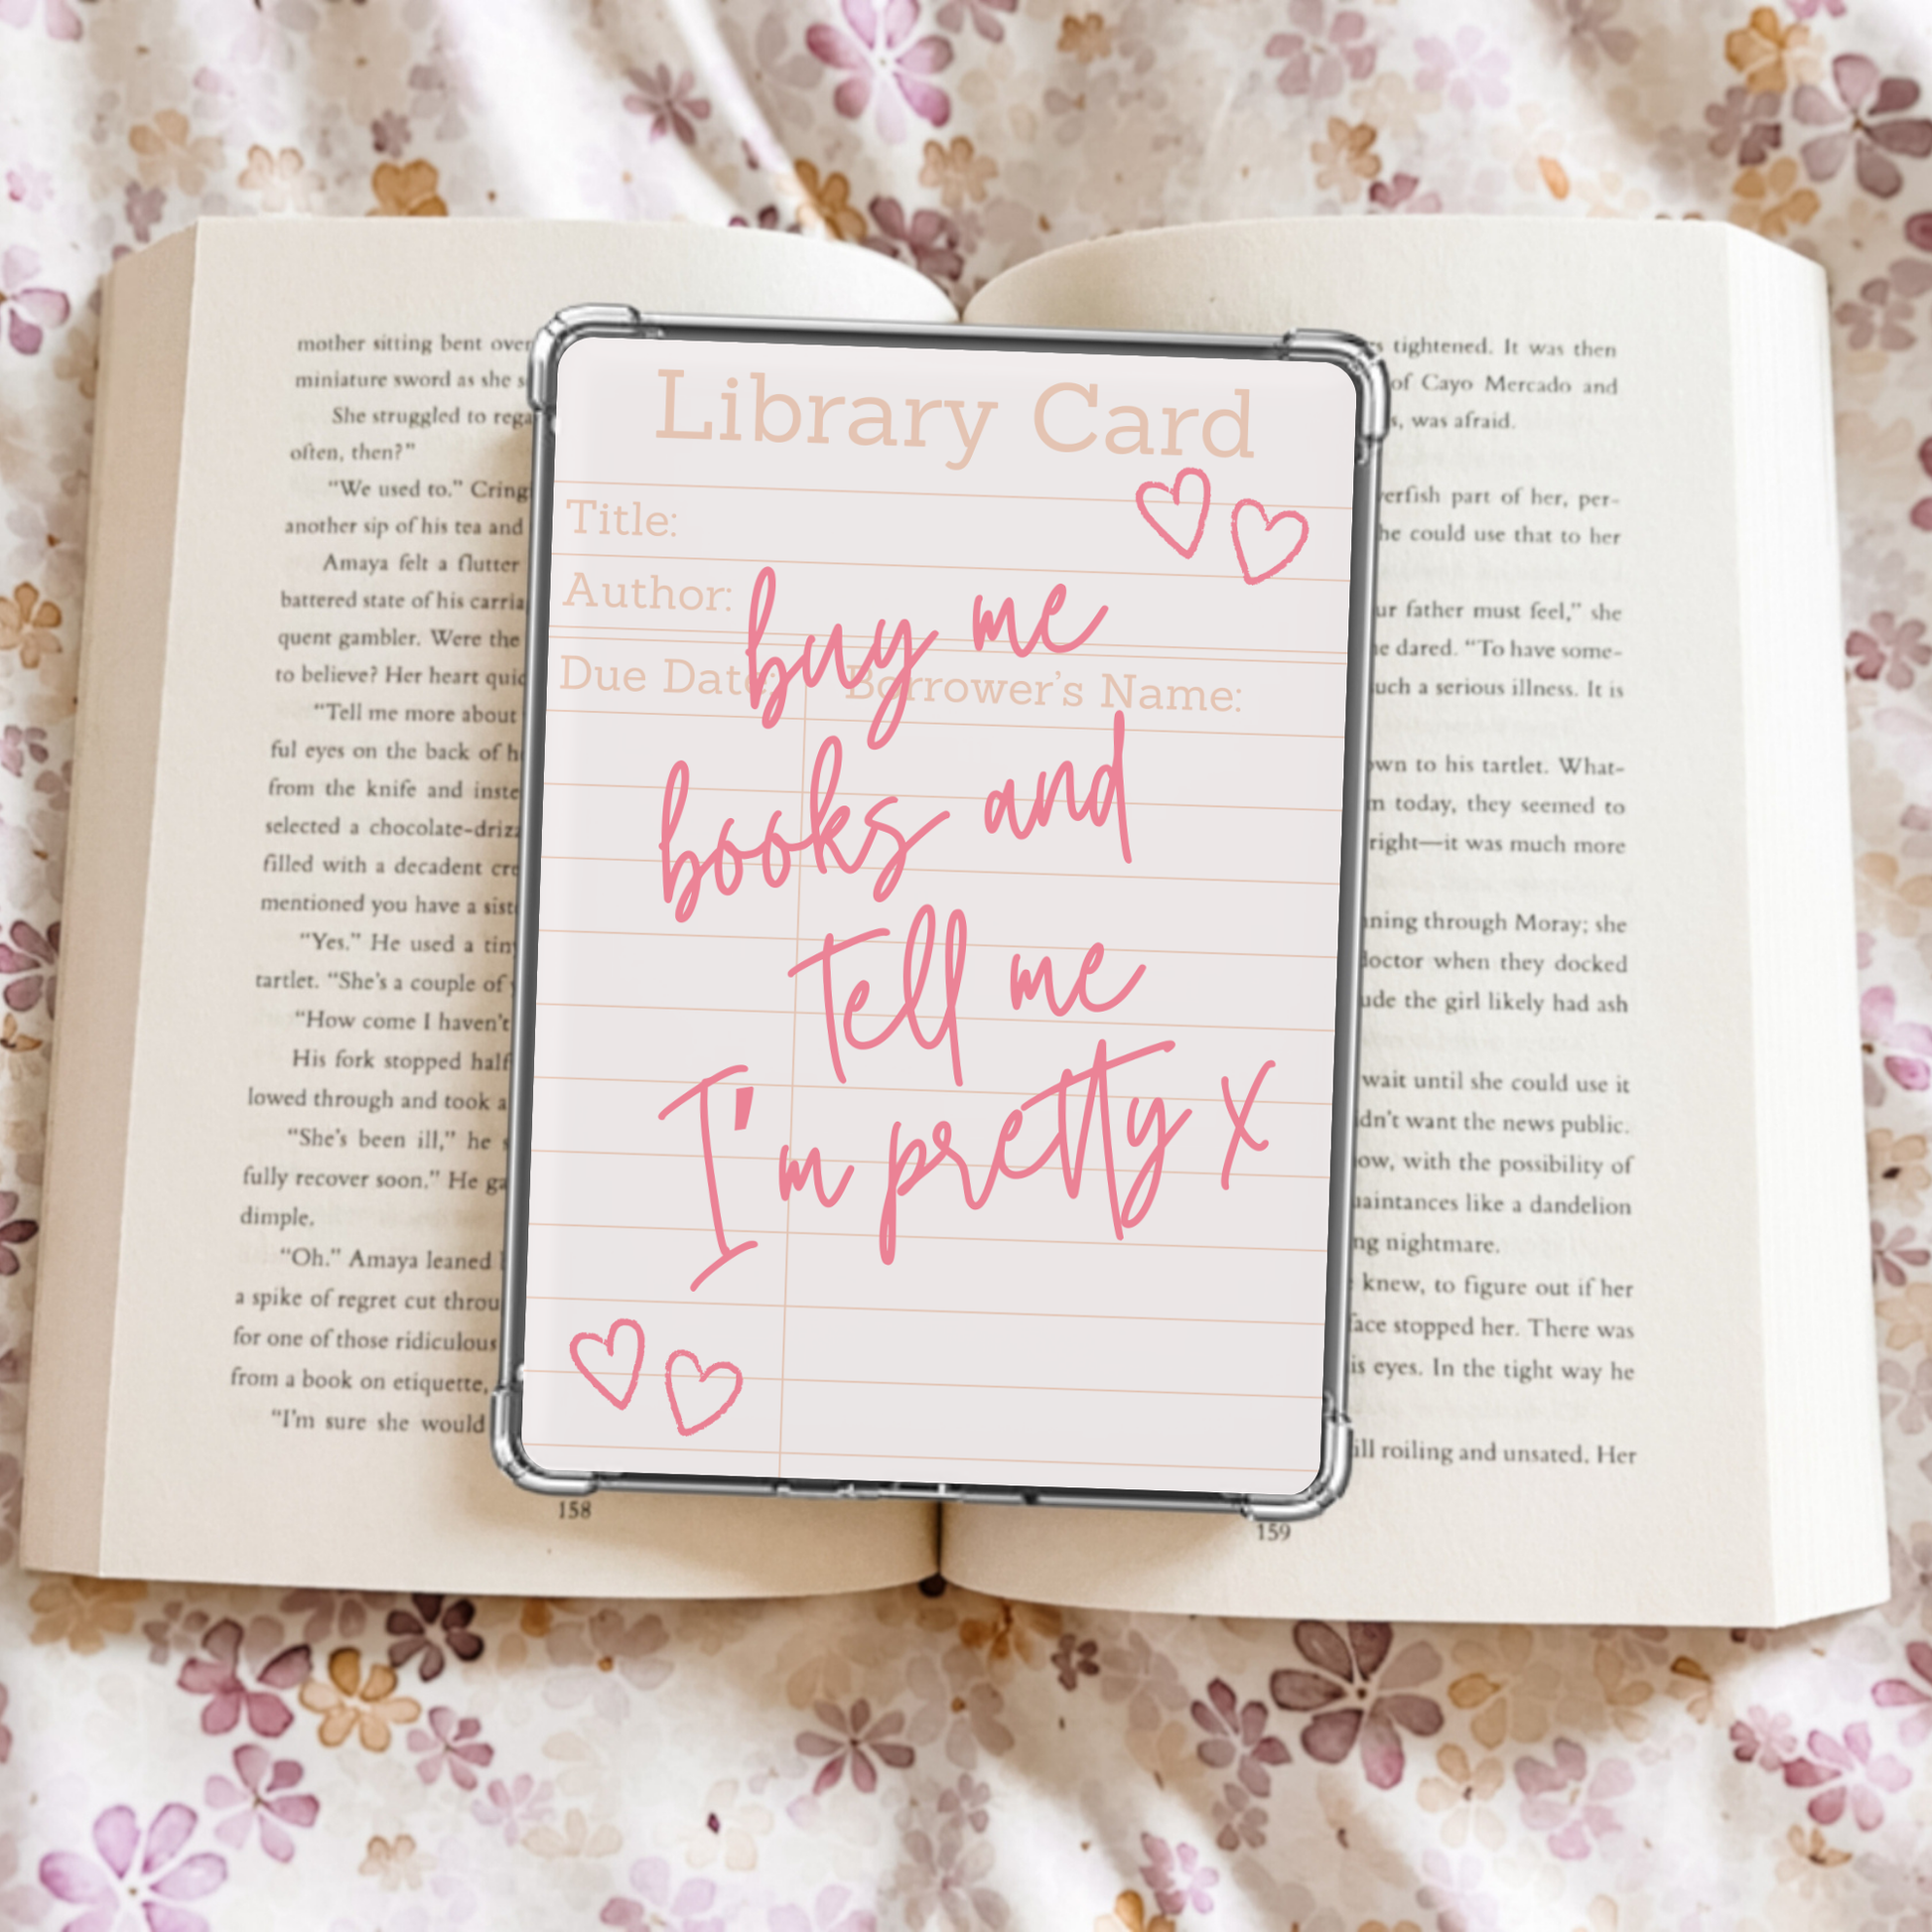 mother sitting bent over
miniature sword as she
She struggled to
often, then?”
“We used to.”
another sip of his tea and
Amaya felt a flutter
battered state of his
quent gambler. Were the
to believe? Her heart
“Tell me more about
ful eyes on the back of
from the knife and
selected a
filled with a decadent
mentioned you have a
“Yes.” He used a
tartlet. “She’s a couple of
“How come I haven’t
His fork stopped
lowed through and took a
“She’s been ill,” he
fully recover soon.” He
dimple.
“Oh.” Amaya leaned
a spike of regret cut
for one of those ridiculous
from a book on etiquette,
“I’m sure she would
158
Library Card
Title:
Author:
Due Date:
Borrower’s Name:
buy me
books and
tell me
I'm pretty x
tightened. It was then
of Cayo Mercado and
was afraid.
part of her, per-
he could use that to her
father must feel,” she
dared. “To have some-
such a serious illness. It is
to his tartlet. What-
today, they seemed to
right—it was much more
through Moray; she
doctor when they docked
the girl likely had ash
wait until she could use it
want the news public.
with the possibility of
like a dandelion
nightmare.
knew, to figure out if her
stopped her. There was
eyes. In the tight way he
roiling and unsated. Her
159